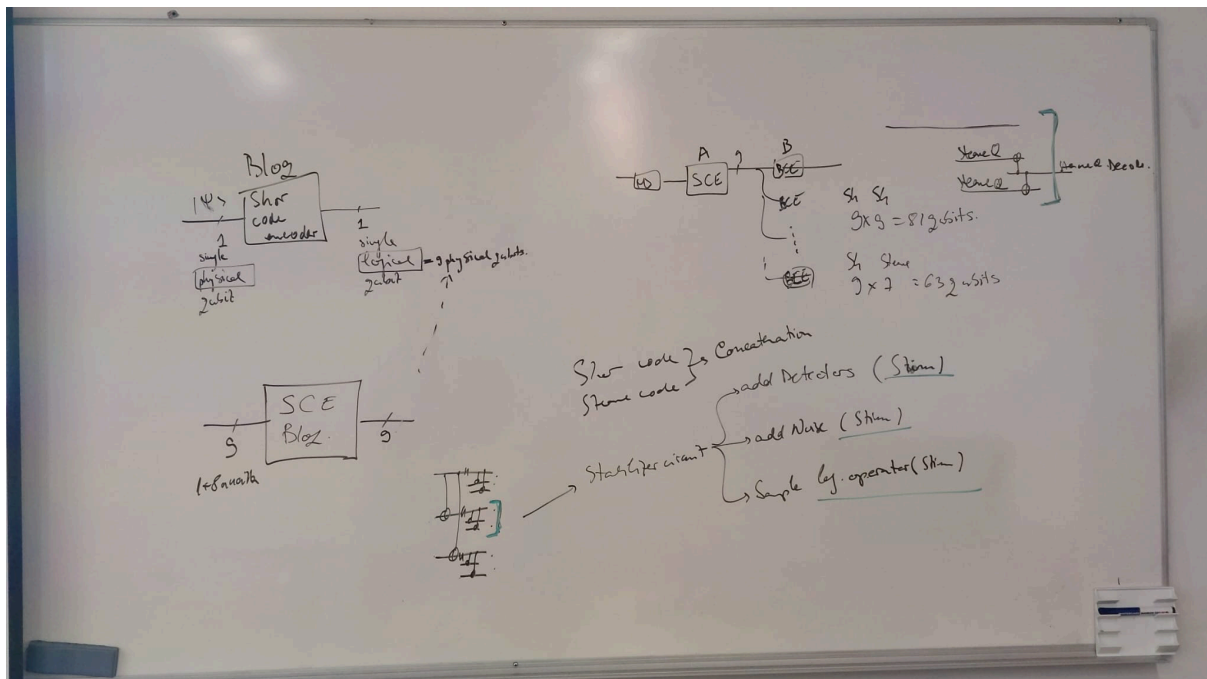 Blog
|Ψ>
Shor
code
encoder
1
single
physical
qubit
1
single
logical = 9 physical qubits.
qubit
SCE
Blog.
9
9
1+8 ancilla
A
SCE
9
B
SCE
SCE
SCE
Sh Sh
9x9 = 81 qubits.
Sh Steane
9 x 7 = 63 qubits
Steane
Steane
Decode.
Shor code
Steane code
Concatenation
Stabilizer circuit
add Detectors (Stim)
add Noise (Stim)
Sample log. operator (Stim)